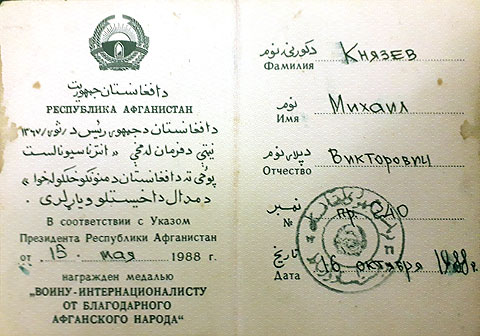 د افغانستان جمهوریت
РЕСПУБЛИКА АФГАНИСТАН
د افغانستان د جمهور رئیس د
نیټې د فرمان له مخې «انترناسیونالست
د مدال د اخیستلو ویاړ لري.
В соответствии с Указом
Президента Республики Афганистан
от 15. мая 1988 г.
награжден медалью
"ВОИНУ-ИНТЕРНАЦИОНАЛИСТУ
ОТ БЛАГОДАРНОГО
АФГАНСКОГО НАРОДА"
د کورنی نوم
Фамилия Князев
نوم
Имя Михаил
د پلار نوم
Отчество Викторович
نمبر
№ пр ОДО
تاریخ
Дата 16 октября 1988 г.